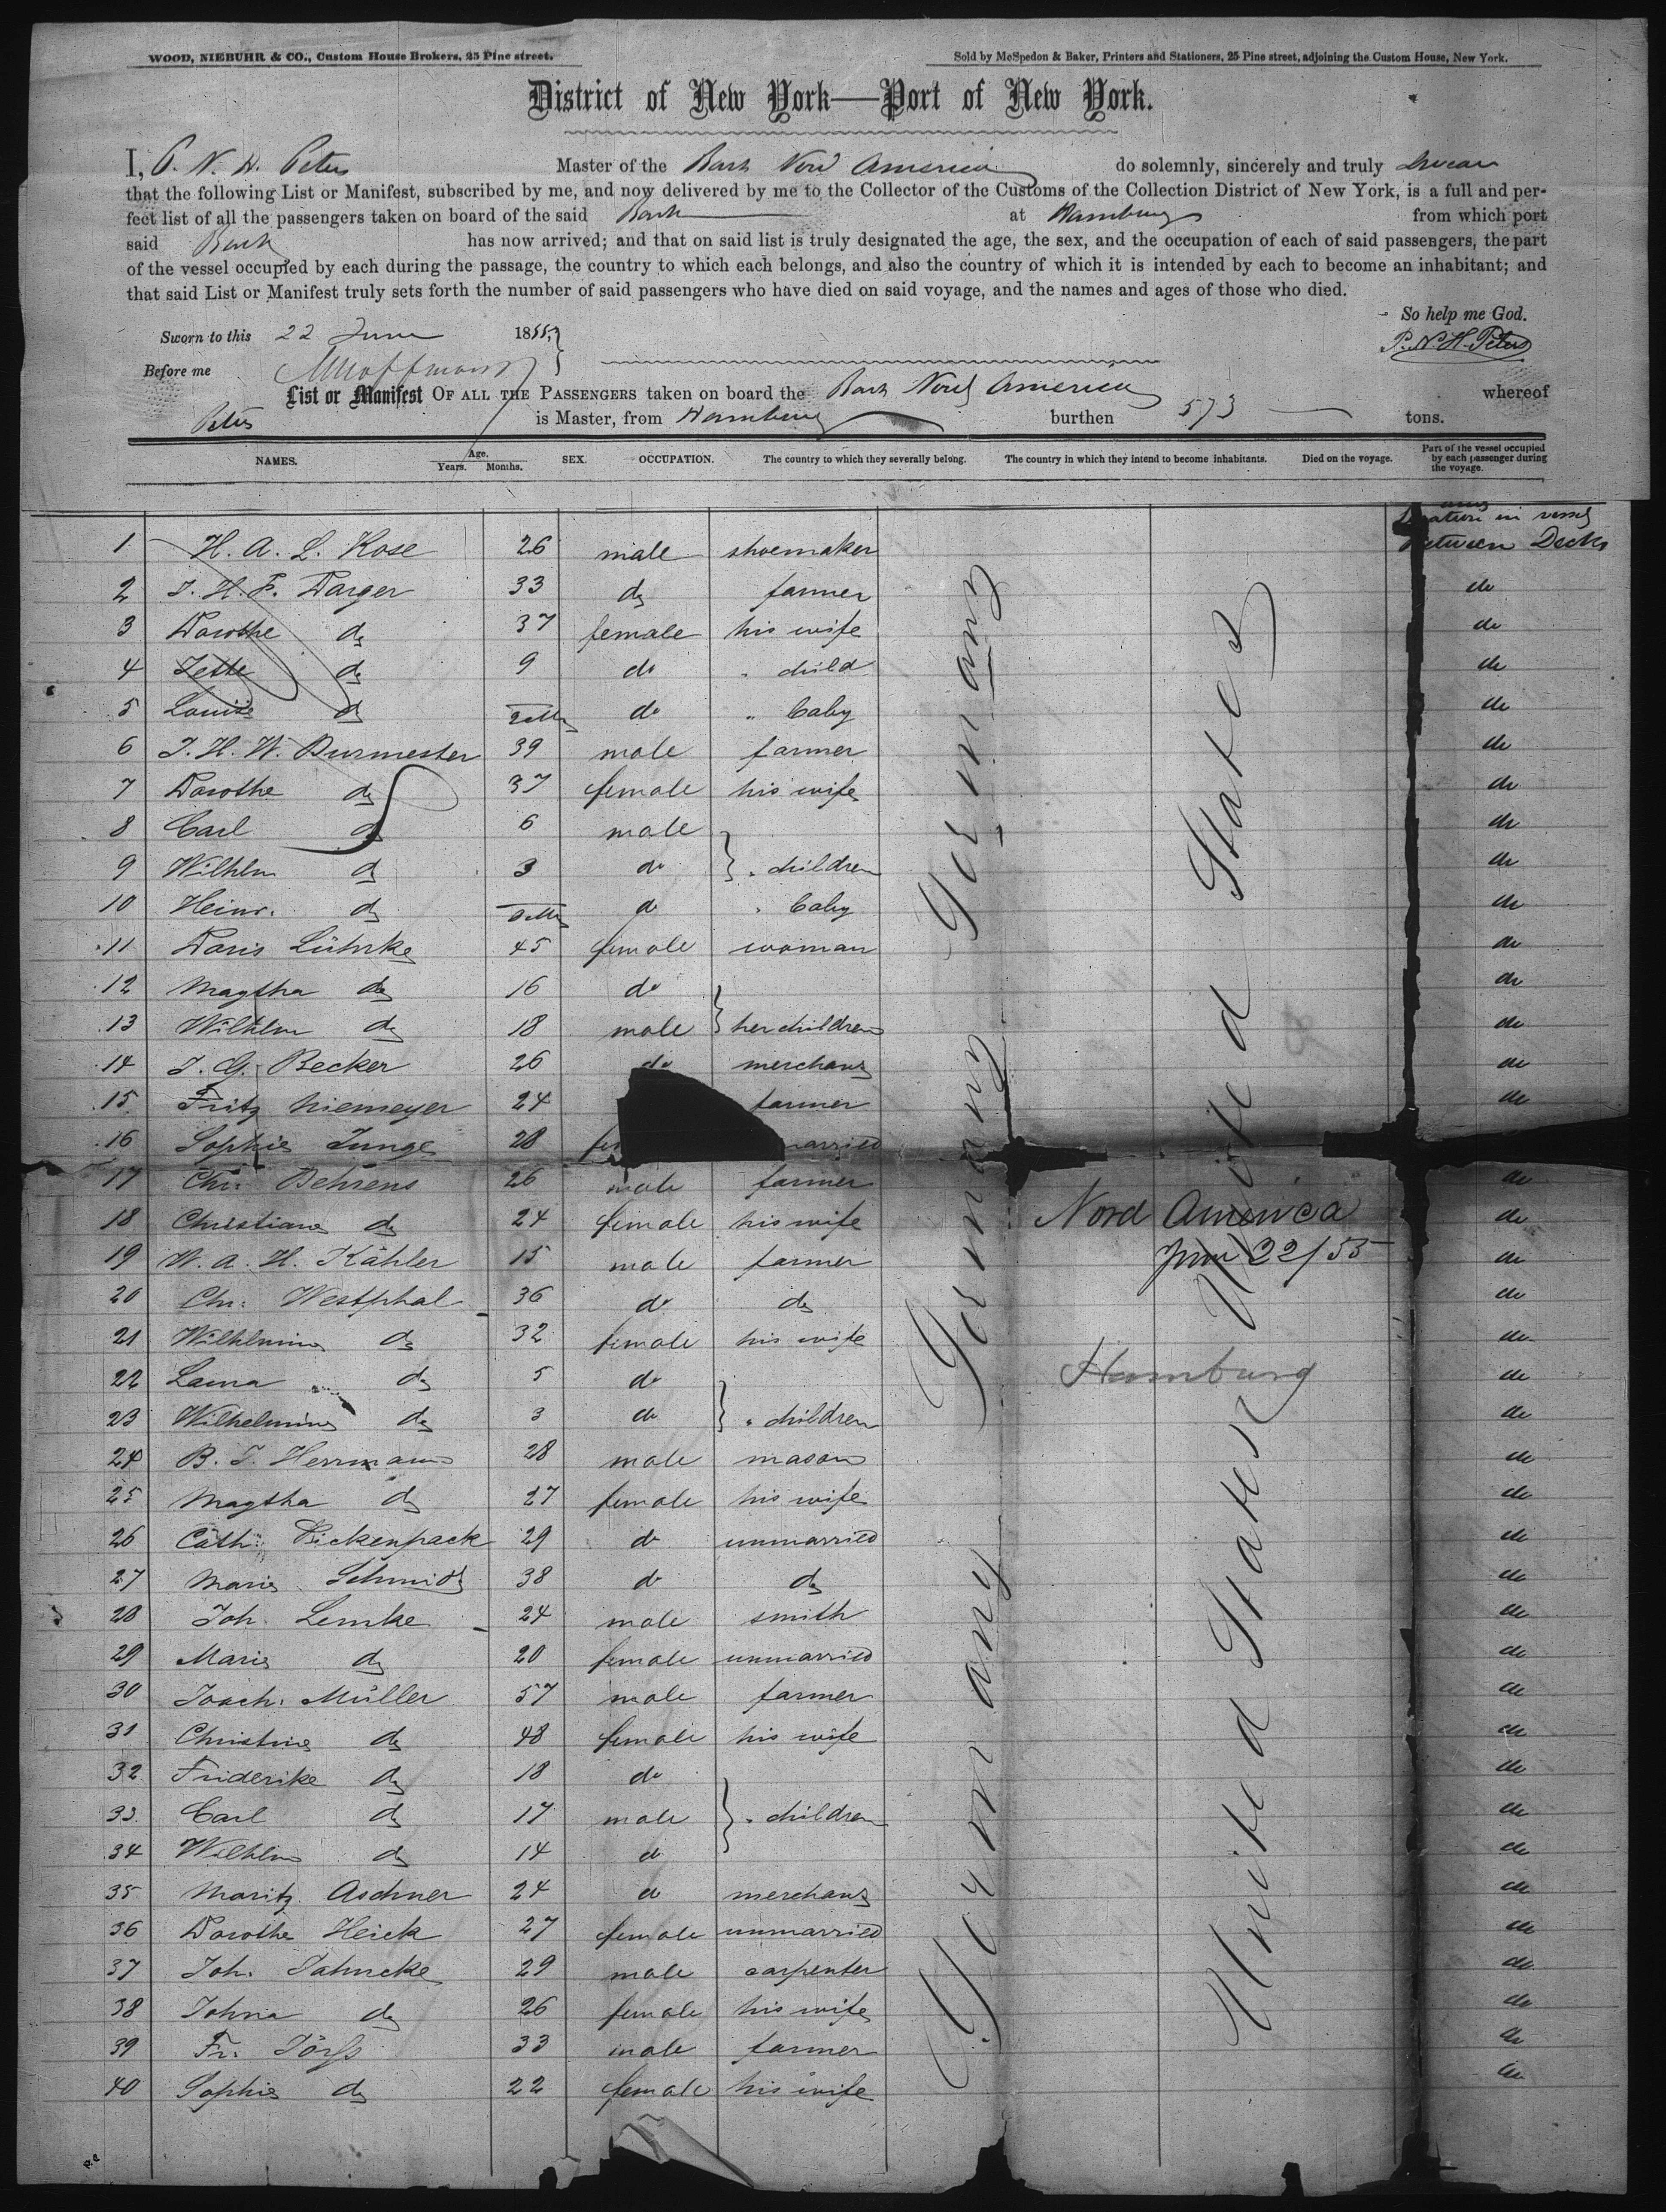 WOOD, NIEBUHR & CO., Custom House Brokers, 25 Pine street.
Sold by McSpedon & Baker, Printers and Stationers, 25 Pine street, adjoining the Custom House, New York.
District of New York—Port of New York.
I, P. N. H. Peters Master of the Bark Nord America do solemnly, sincerely and truly swear
that the following List or Manifest, subscribed by me, and now delivered by me to the Collector of the Customs of the Collection District of New York, is a full and per-
fect list of all the passengers taken on board of the said Bark at Hamburg from which port
said Bark has now arrived; and that on said list is truly designated the age, the sex, and the occupation of each of said passengers, the part
of the vessel occupied by each during the passage, the country to which each belongs, and also the country of which it is intended by each to become an inhabitant; and
that said List or Manifest truly sets forth the number of said passengers who have died on said voyage, and the names and ages of those who died.
So help me God.
Sworn to this 22 June 1855,
P. N. H. Peters
Before me
List or Manifest OF ALL THE PASSENGERS taken on board the Bark Nord America whereof
Peters is Master, from Hamburg burthen 573 tons.
NAMES. Age. Years. Months. SEX. OCCUPATION. The country to which they severally belong. The country in which they intend to become inhabitants. Died on the voyage. Part of the vessel occupied by each passenger during the voyage.
in vessel
1 H. A. L. Kose 26 male shoemaker Between Decks
2 J. H. F. Darger 33 do farmer do
3 Dorothe do 37 female his wife do
4 Jette do 9 do " child do
5 Louise do do " baby do
6 J. H. W. Burmester 39 male farmer do
7 Dorothe do 37 female his wife do
8 Carl do 6 male do
9 Wilhlm do 3 do " children do
10 Heinr. do do " baby do
11 Doris Lührke 45 female woman do
12 Magtha do 16 do do
13 Wilhlm do 18 male her children do
14 J. G. Becker 26 do merchant do
15 Fritz Niemeyer 24 farmer do
16 Sophie Junge 28 fe married
17 Chr. Behrens 26 male farmer do
18 Christiane do 24 female his wife do
19 W. A. H. Kähler 15 male farmer do
20 Chr: Westphal 36 do do do
21 Wilhlmine do 32 female his wife do
22 Laura do 5 do do
23 Wilhelmine do 3 do " children do
24 B. J. Herrmann 28 male mason do
25 Magtha do 27 female his wife do
26 Cath: Dickenpack 29 do unmarried do
27 Marie Schmidt 38 do do do
28 Joh. Lemke 24 male smith do
29 Marie do 20 female unmarried do
30 Joach: Müller 57 male farmer do
31 Christine do 48 female his wife do
32 Friderike do 18 do do
33 Carl do 17 male " children do
34 Wilhlm do 14 do do
35 Moritz Aschner 24 do merchant do
36 Dorothe Heick 27 female unmarried do
37 Joh. Jahncke 29 male carpenter do
38 Johna do 26 female his wife do
39 Fr. Jörss 33 male farmer do
40 Sophie do 22 female his wife do
Germany Germany Germany
United States United States
Nord America
June 22/55
Hamburg